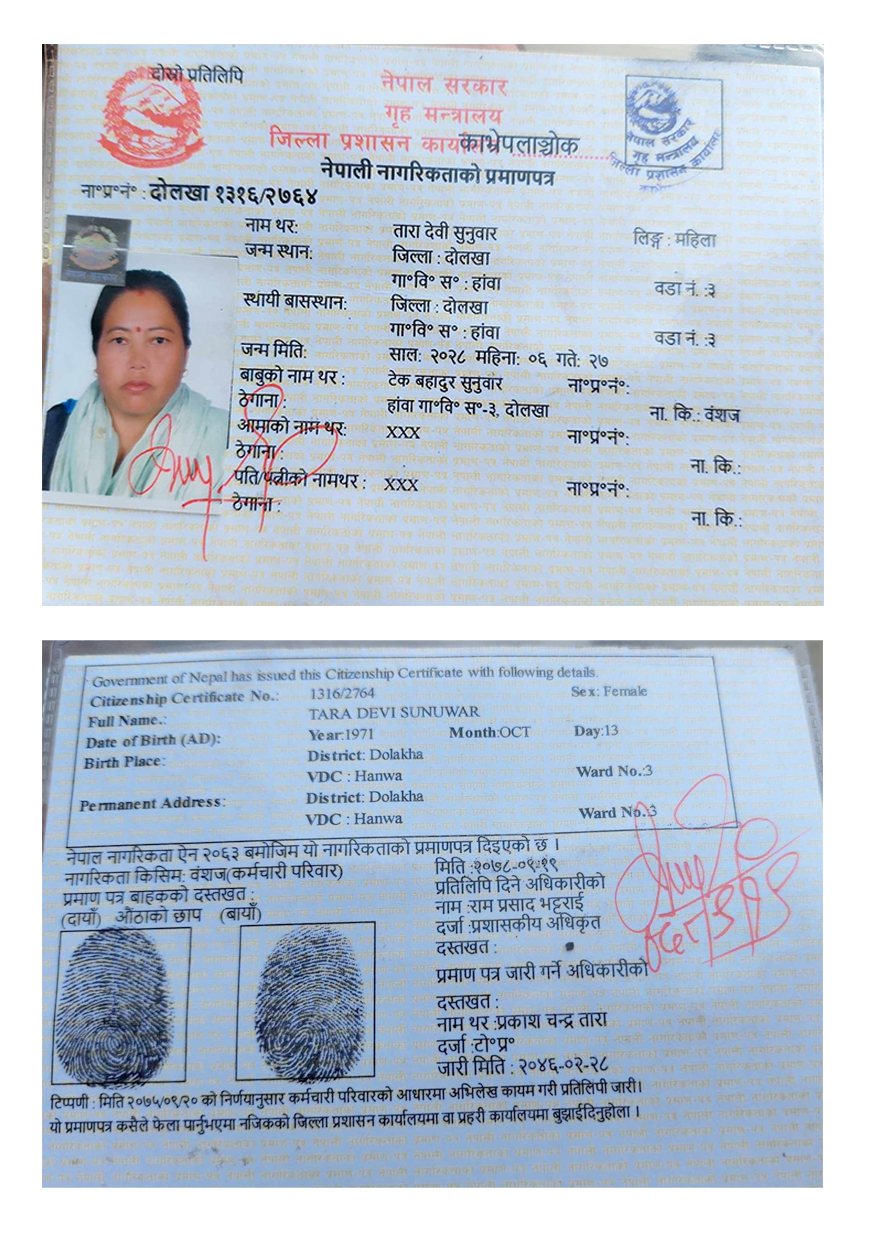 दोस्रो प्रतिलिपि
नेपाल सरकार
गृह मन्त्रालय
जिल्ला प्रशासन कार्यालय काभ्रेपलाञ्चोक
नेपाल सरकार
गृह मन्त्रालय
जिल्ला प्रशासन कार्यालय
नेपाली नागरिकताको प्रमाणपत्र
ना°प्र°नं° : दोलखा १३१६/२७६४
नाम थर: तारा देवी सुनुवार लिङ्ग : महिला
जन्म स्थान: जिल्ला : दोलखा
गा°वि° स° : हांवा वडा नं. :३
स्थायी बासस्थान: जिल्ला : दोलखा
गा°वि° स° : हांवा वडा नं. :३
जन्म मिति: साल: २०२८ महिना: ०६ गते: २७
बाबुको नाम थर : टेक बहादुर सुनुवार ना°प्र°नं°:
ठेगाना : हांवा गा°वि° स°-३, दोलखा ना. कि.: वंशज
आमाको नाम थर: XXX ना°प्र°नं°:
ठेगाना : ना. कि.:
पति/पत्नीको नामथर : XXX ना°प्र°नं°:
ठेगाना : ना. कि.:
Government of Nepal has issued this Citizenship Certificate with following details.
Citizenship Certificate No.: 1316/2764 Sex: Female
Full Name.: TARA DEVI SUNUWAR
Date of Birth (AD): Year:1971 Month:OCT Day:13
Birth Place: District: Dolakha
VDC : Hanwa Ward No.:3
Permanent Address: District: Dolakha
VDC : Hanwa Ward No.:3
नेपाल नागरिकता ऐन २०६३ बमोजिम यो नागरिकताको प्रमाणपत्र दिइएको छ ।
नागरिकता किसिम: वंशज(कर्मचारी परिवार)
प्रमाण पत्र बाहकको दस्तखत :
(दायाँ) औंठाको छाप (बायाँ)
मिति :२०७८-०९-१९
प्रतिलिपि दिने अधिकारीको
नाम :राम प्रसाद भट्टराई
दर्जा :प्रशासकीय अधिकृत
दस्तखत :
प्रमाण पत्र जारी गर्ने अधिकारीको
दस्तखत :
नाम थर :प्रकाश चन्द्र तारा
दर्जा :टो°प्र°
जारी मिति : २०४६-०२-२८
टिप्पणी : मिति २०७५/०९/२० को निर्णयानुसार कर्मचारी परिवारको आधारमा अभिलेख कायम गरी प्रतिलिपी जारी।
यो प्रमाणपत्र कसैले फेला पार्नुभएमा नजिकको जिल्ला प्रशासन कार्यालयमा वा प्रहरी कार्यालयमा बुझाईदिनुहोला ।